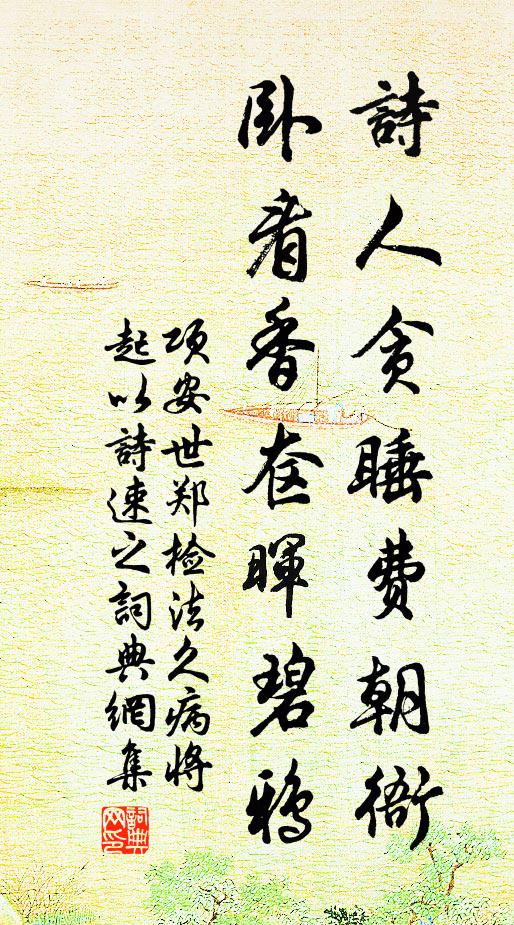 詩人貪睡費朝衙
卧看香奁暉碧鴉
项安世郑检法久病将
起以詩速之詞典網集
詞典
网印